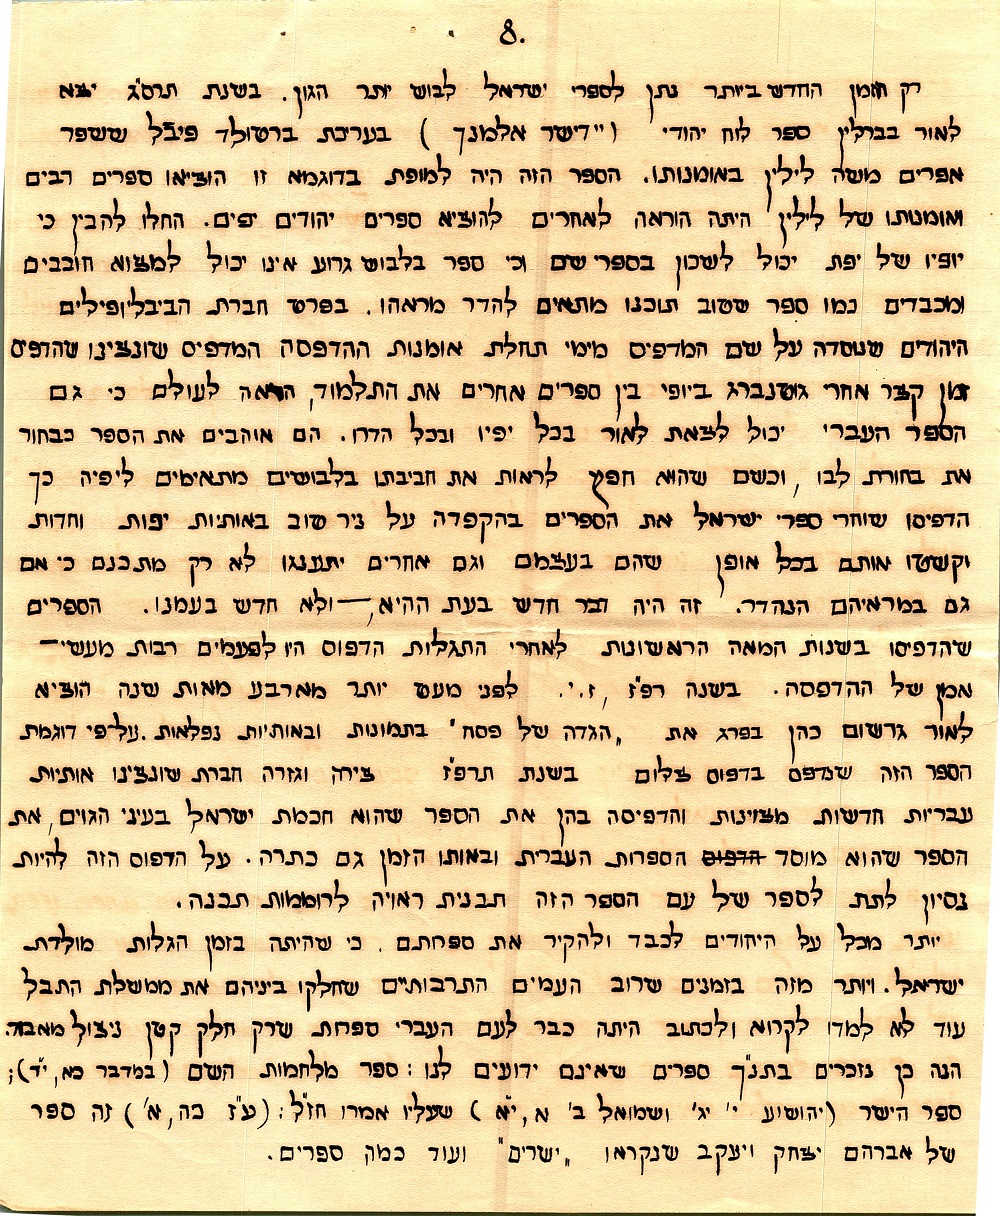 8.
רק הזמן החדש ביותר נתן לספרי ישראל לבוש יותר הגון. בשנת תרס"ג יצא
לאור בברלין ספר לוח יהודי (יידישר אלמנך) בעריכת ברטולד פיבל ששפר
אפרים משה ליליין באומנותו. הספר הזה היה למופת. בדוגמא זו הוציאו ספרים רבים
ואומנותו של ליליין היתה הוראה לאחרים להוציא ספרים יהודים יפים. החלו להבין כי
יופיו של יפת יכול לשכון בספרי שם וכי ספר בלבוש גרוע אינו יכול למצוא חובבים
ומכבדים כמו ספר שטוב תוכנו מתאים להדר מראהו. בפרט חברת הביבליופילים
היהודים שנוסדה על שם המדפיס מימי תחלת אומנות ההדפסה המדפיס שונצינו שהדפיס
זמן קצר אחרי גוטנברג ביופי בין ספרים אחרים את התלמוד, הראה לעולם כי גם
הספר העברי יכול לצאת לאור בכל יפיו ובכל הדרו. הם אוהבים את הספר כבחור
את בחורת לבו, וכשם שהוא חפץ לראות את חביבתו בלבושים מתאימים ליפיה כך
הדפיסו שוחרי ספרי ישראל את הספרים בהקפדה על ניר טוב באותיות יפות וחדות
וקשטו אותם בכל אופן שהם בעצמם וגם אחרים יתענגו לא רק מתכנם כי אם
גם במראיהם הנהדר. זה היה דבר חדש בעת ההיא, — ולא חדש בעמנו. הספרים
שהדפיסו בשנות המאה הראשונות לאחרי התגלות הדפוס היו לפעמים רבות מעשי—
אמן של ההדפסה. בשנה רפ"ז, ז.י. לפני מעט יותר מארבע מאות שנה הוציא
לאור גרשום כהן בפרג את "הגדה של פסח" בתמונות ובאותיות נפלאות. על-פי דוגמת
הספר הזה שנדפס בדפוס צלום בשנת תרפ"ז צירה וגזרה חברת שונצינו אותיות
עבריות חדשות מצוינות והדפיסה בהן את הספר שהוא חכמת ישראל בעיני הגוים, את
הספר שהוא מוסד הדפוס הספרות העברית ובאותו הזמן גם כתרה. על הדפוס הזה להיות
נסיון לתת לספר של עם הספר הזה תבנית ראויה לרוממות תכנה.
יותר מכל על היהודים לכבד ולהקיר את ספרותם, כי שהיתה בזמן הגלות מולדת
ישראל. ויותר מזה בזמנים שרוב העמים התרבותיים שחלקו ביניהם את ממשלת התבל
עוד לא למדו לקרוא ולכתוב היתה כבר לעם העברי ספרות שרק חלק קטן ניצול מאבוד.
הנה כן נזכרים בתנ"ך ספרים שאינם ידועים לנו: ספר מלחמות השם (במדבר כא, י"ד);
ספר הישר (יהושיע י' יג' ושמואל ב' א, י"א) שעליו אמרו חז"ל: (ע"ז כה, א') זה ספר
של אברהם יצחק ויעקב שנקראו "ישרים" ועוד כמה ספרים.